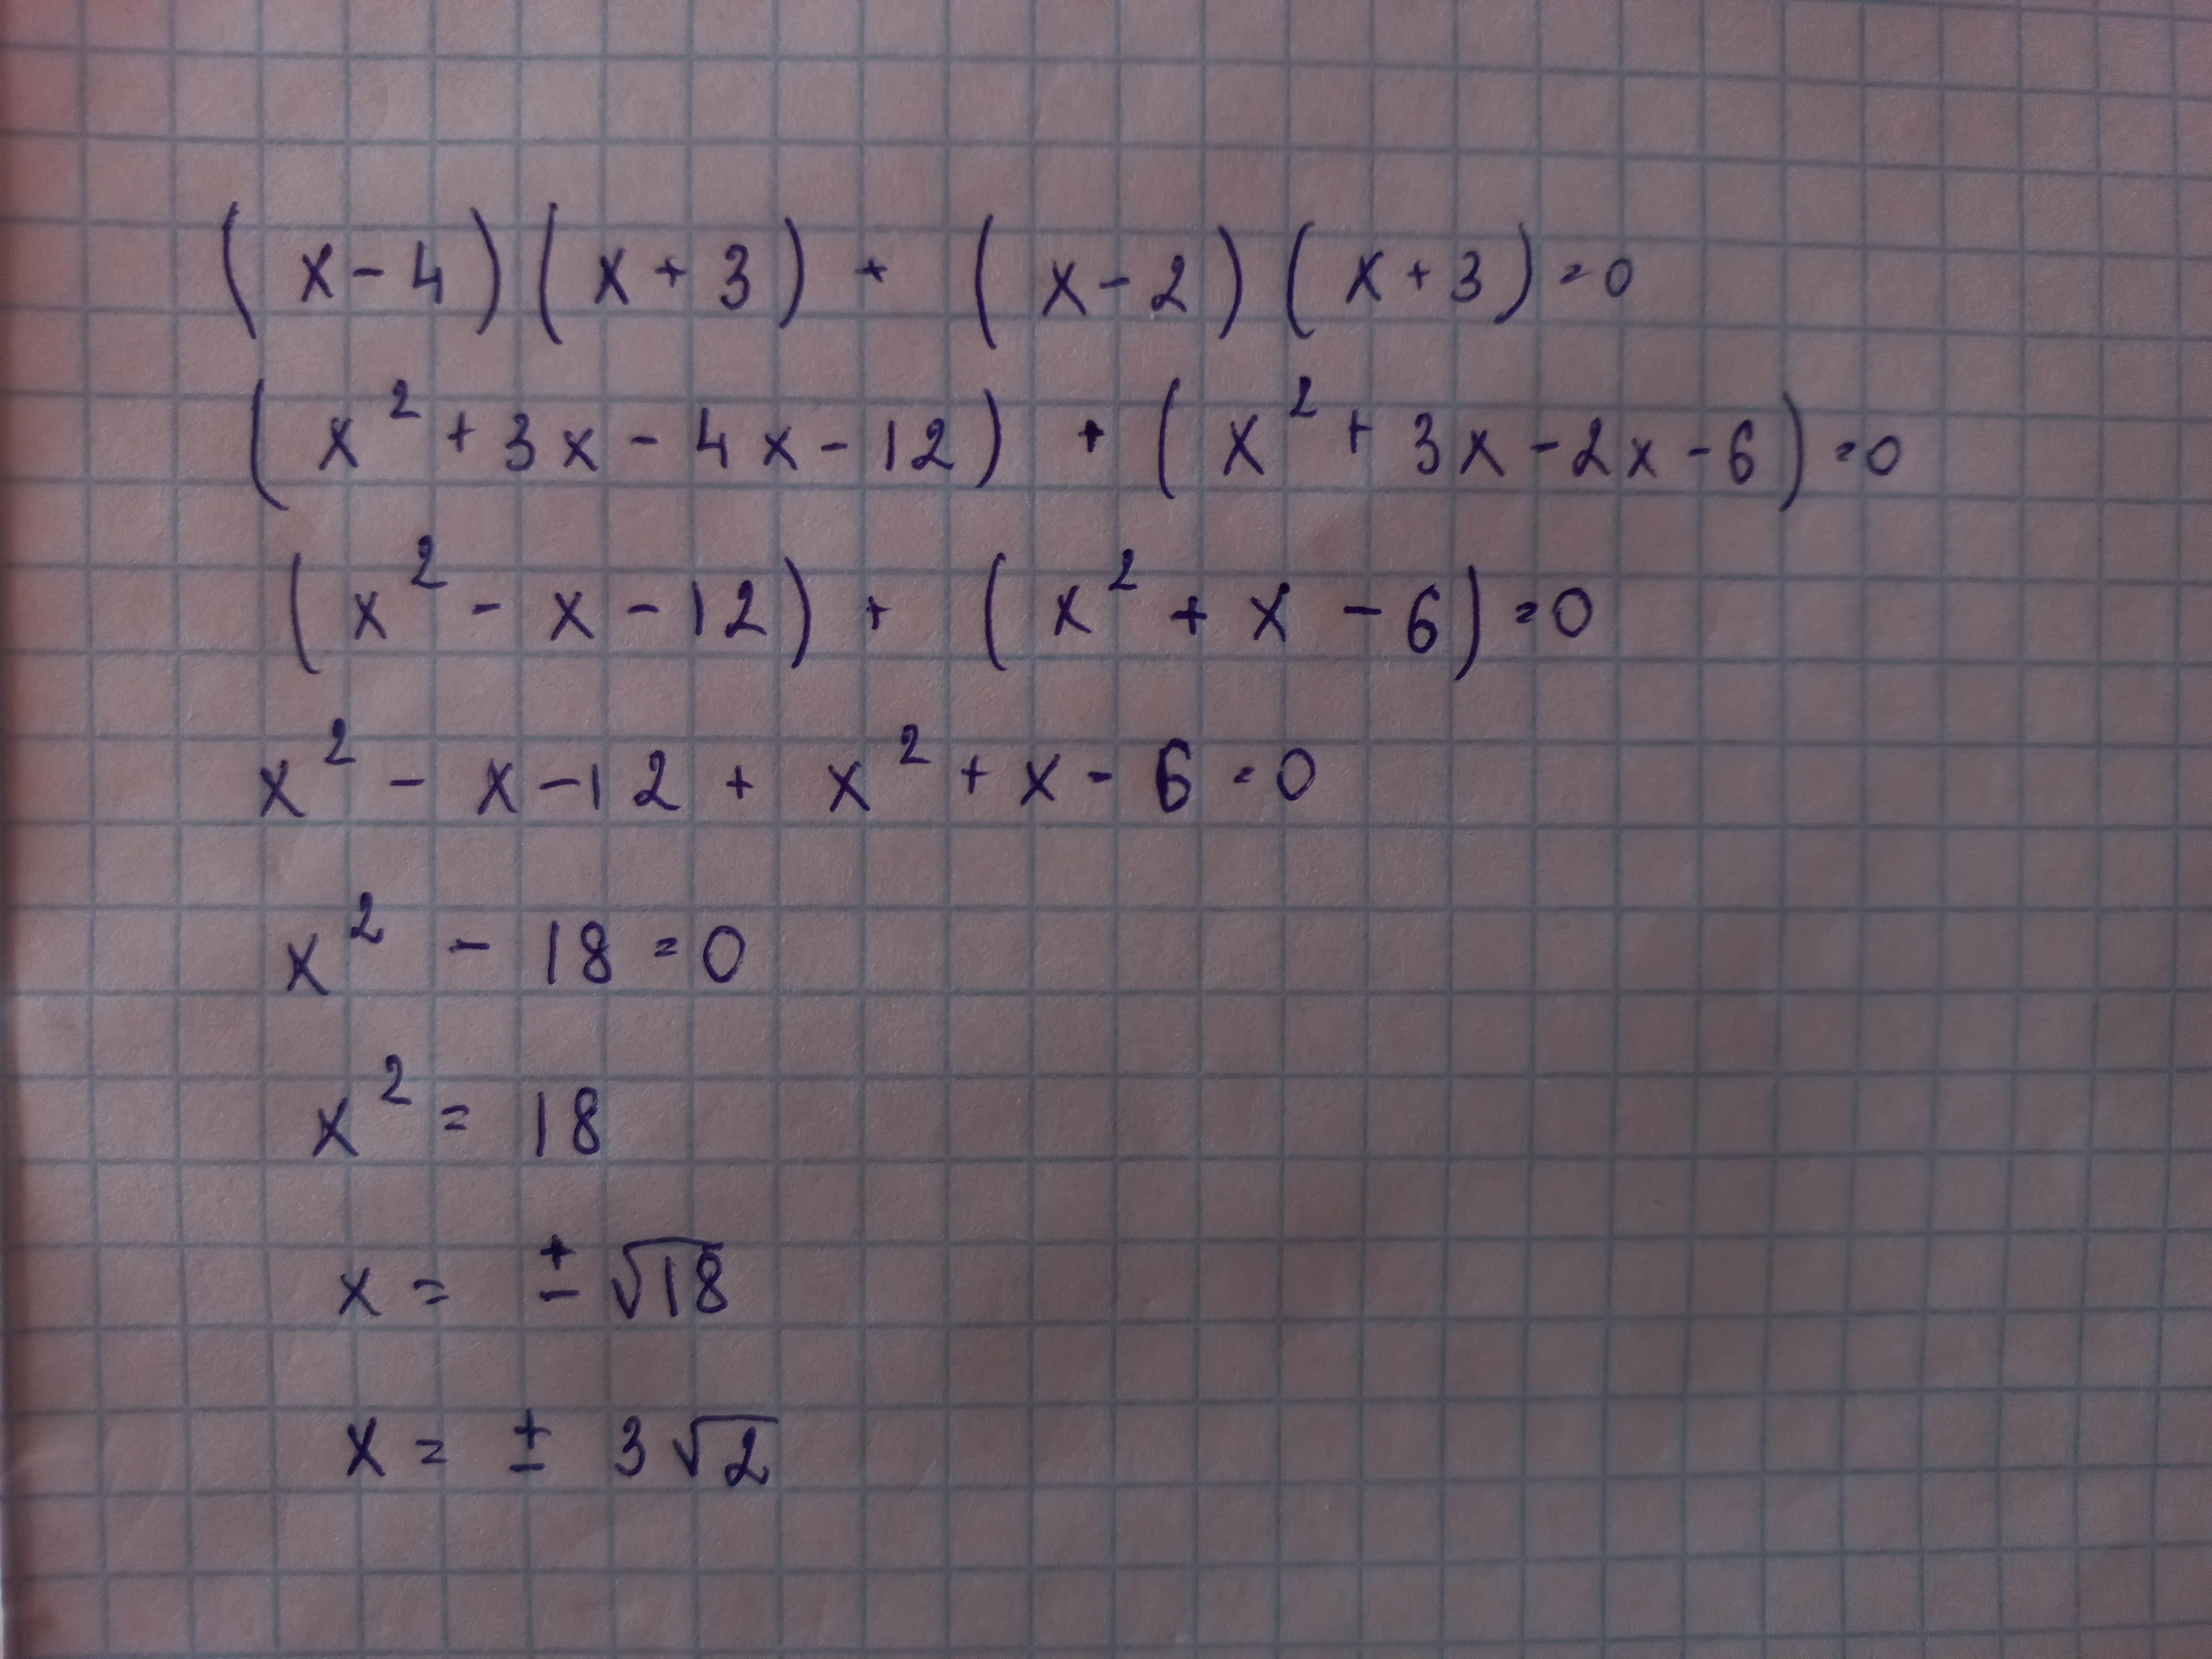 (x-4)(x+3) + (x-2)(x+3)=0
(x²+3x-4x-12) + (x²+3x-2x-6)=0
(x²-x-12) + (x²+x-6)=0
x²-x-12+x²+x-6=0
x²-18=0
x²=18
x=±√18
x=±3√2